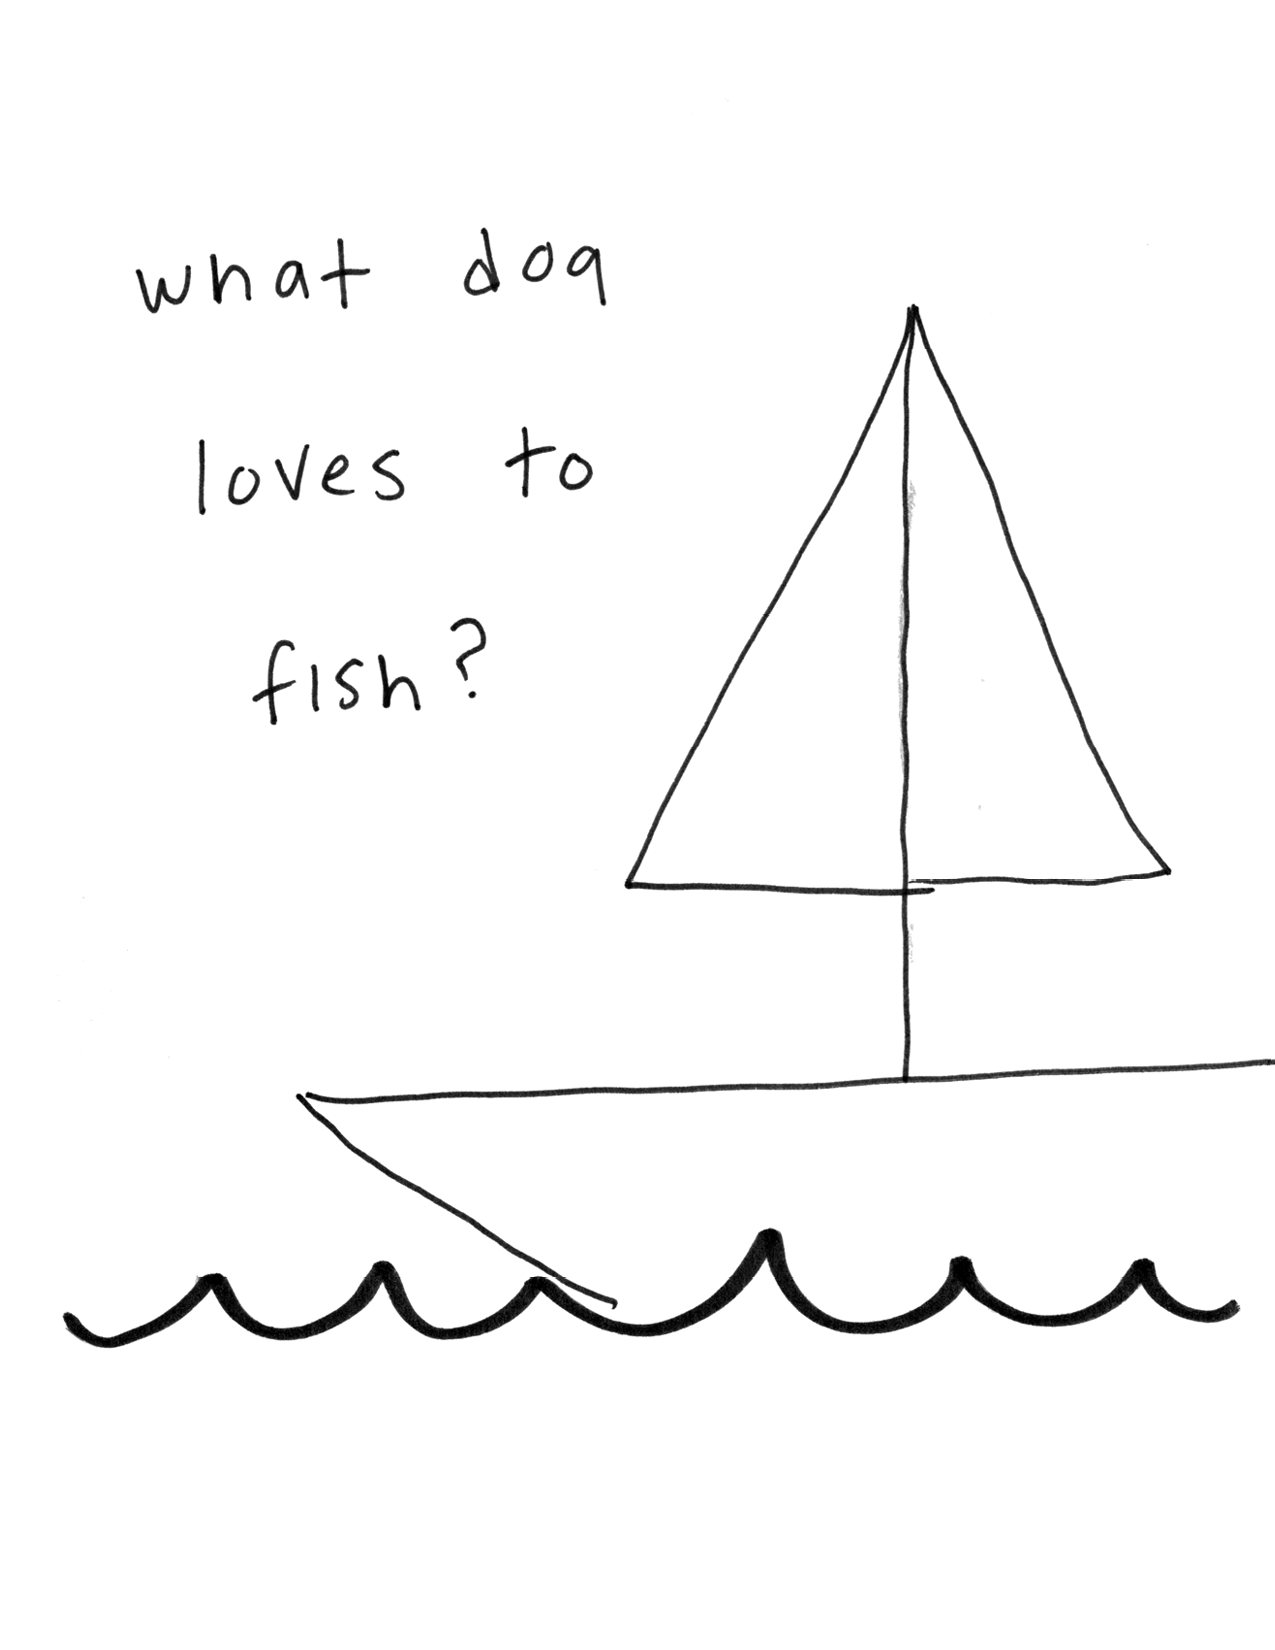 what dog
loves to
fish?